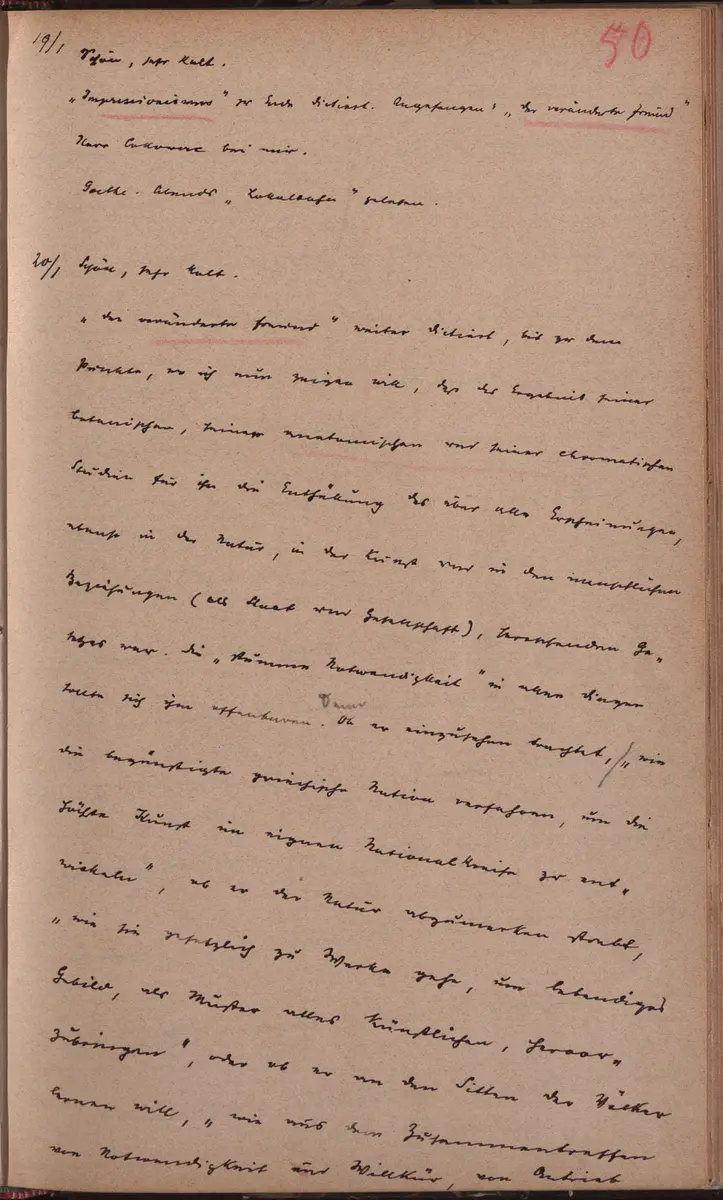 50
19/1 Schön, sehr kalt.
„Impressionismus" zu Ende dictiert. Angefangen: „der veränderte Freund"
Herr bei mir.
Goethe. Abends „ " gelesen.
20/1 Schön, sehr kalt.
„der veränderte Freund" weiter dictiert, bis zu dem
Punkte, wo ich nun zeigen will, dass das Ergebnis seiner
botanischen, seiner anatomischen und seiner chromatischen
Studien für ihn die Enthüllung des über alle Erscheinungen,
ebenso in der Natur, in der Kunst und in den menschlichen
Beziehungen (als Staat und Gesellschaft), herrschenden Ge-
setzes war. Die „stumme Notwendigkeit" in allen Dingen
sollte sich ihm offenbaren. Denn Ob er einzusehen trachtet, / „wie
die begünstigte griechische Nation verfahren, um die
höchste Kunst im eignen Nationalkreise zu ent-
wickeln", ob er der Natur abzumerken strebt,
„wie sie gesetzlich zu Werke gehe, um lebendiges
Gebild, als Muster alles Künstlichen, hervor-
zubringen", oder ob er an den Sitten der Völker
lernen will, „wie aus dem Zusammentreffen
von Notwendigkeit und Willkür, von Antrieb